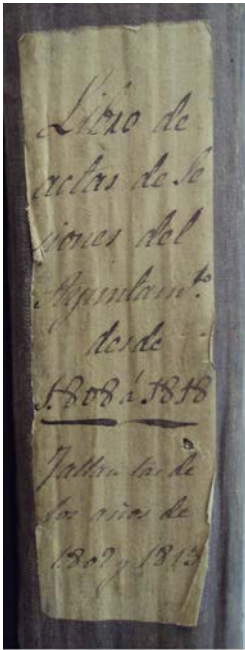 Libro de
actas de Se
siones del
Ayuntam.to
desde
1808 á 1818
Faltan las de
los años de
1809 y 1813